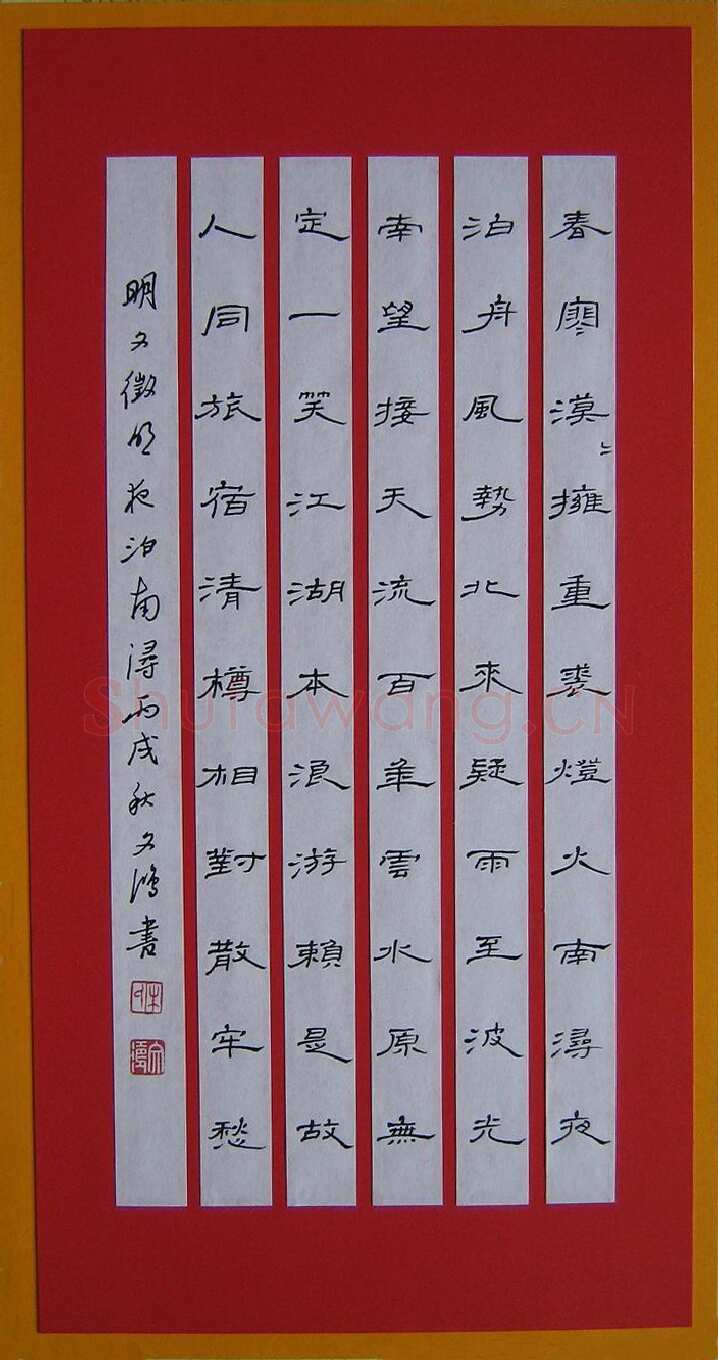 春寥漠〻擁重裘燈火南潯夜
泊舟風勢北來疑雨至波光
南望接天流百年雲水原無
定一笑江湖本浪游賴是故
人同旅宿清樽相對散牢愁
明文徵明夜泊南潯丙戌秋文鴻書
Shufawang.CN